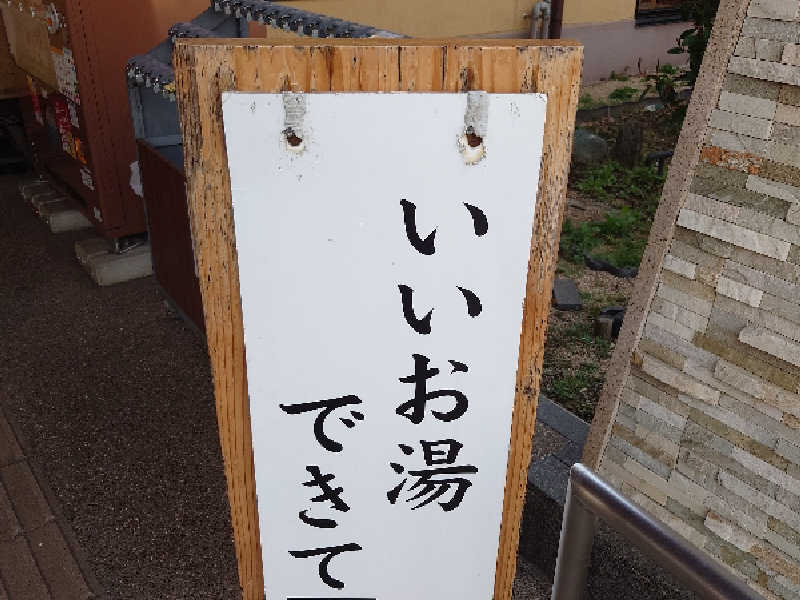 いいお湯
できて